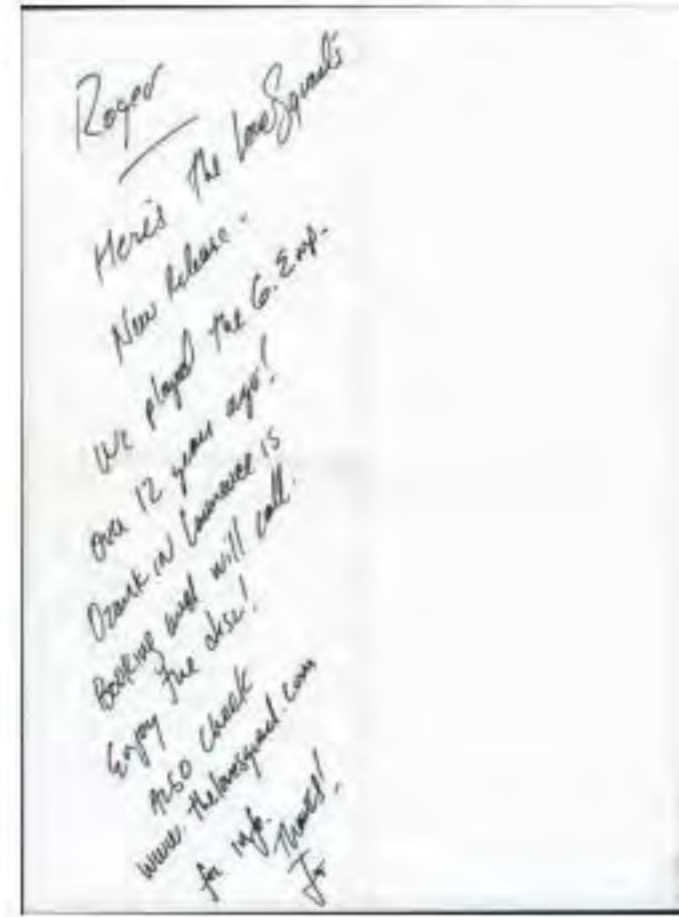 Roger
Here's the LoveSquad's
New Release -
We played the G. Emp.
over 12 years ago!
in Lawrence is
Booking and will call.
Enjoy the disc!
Also check
www.thelovesquad.com
for info.
Thanks!